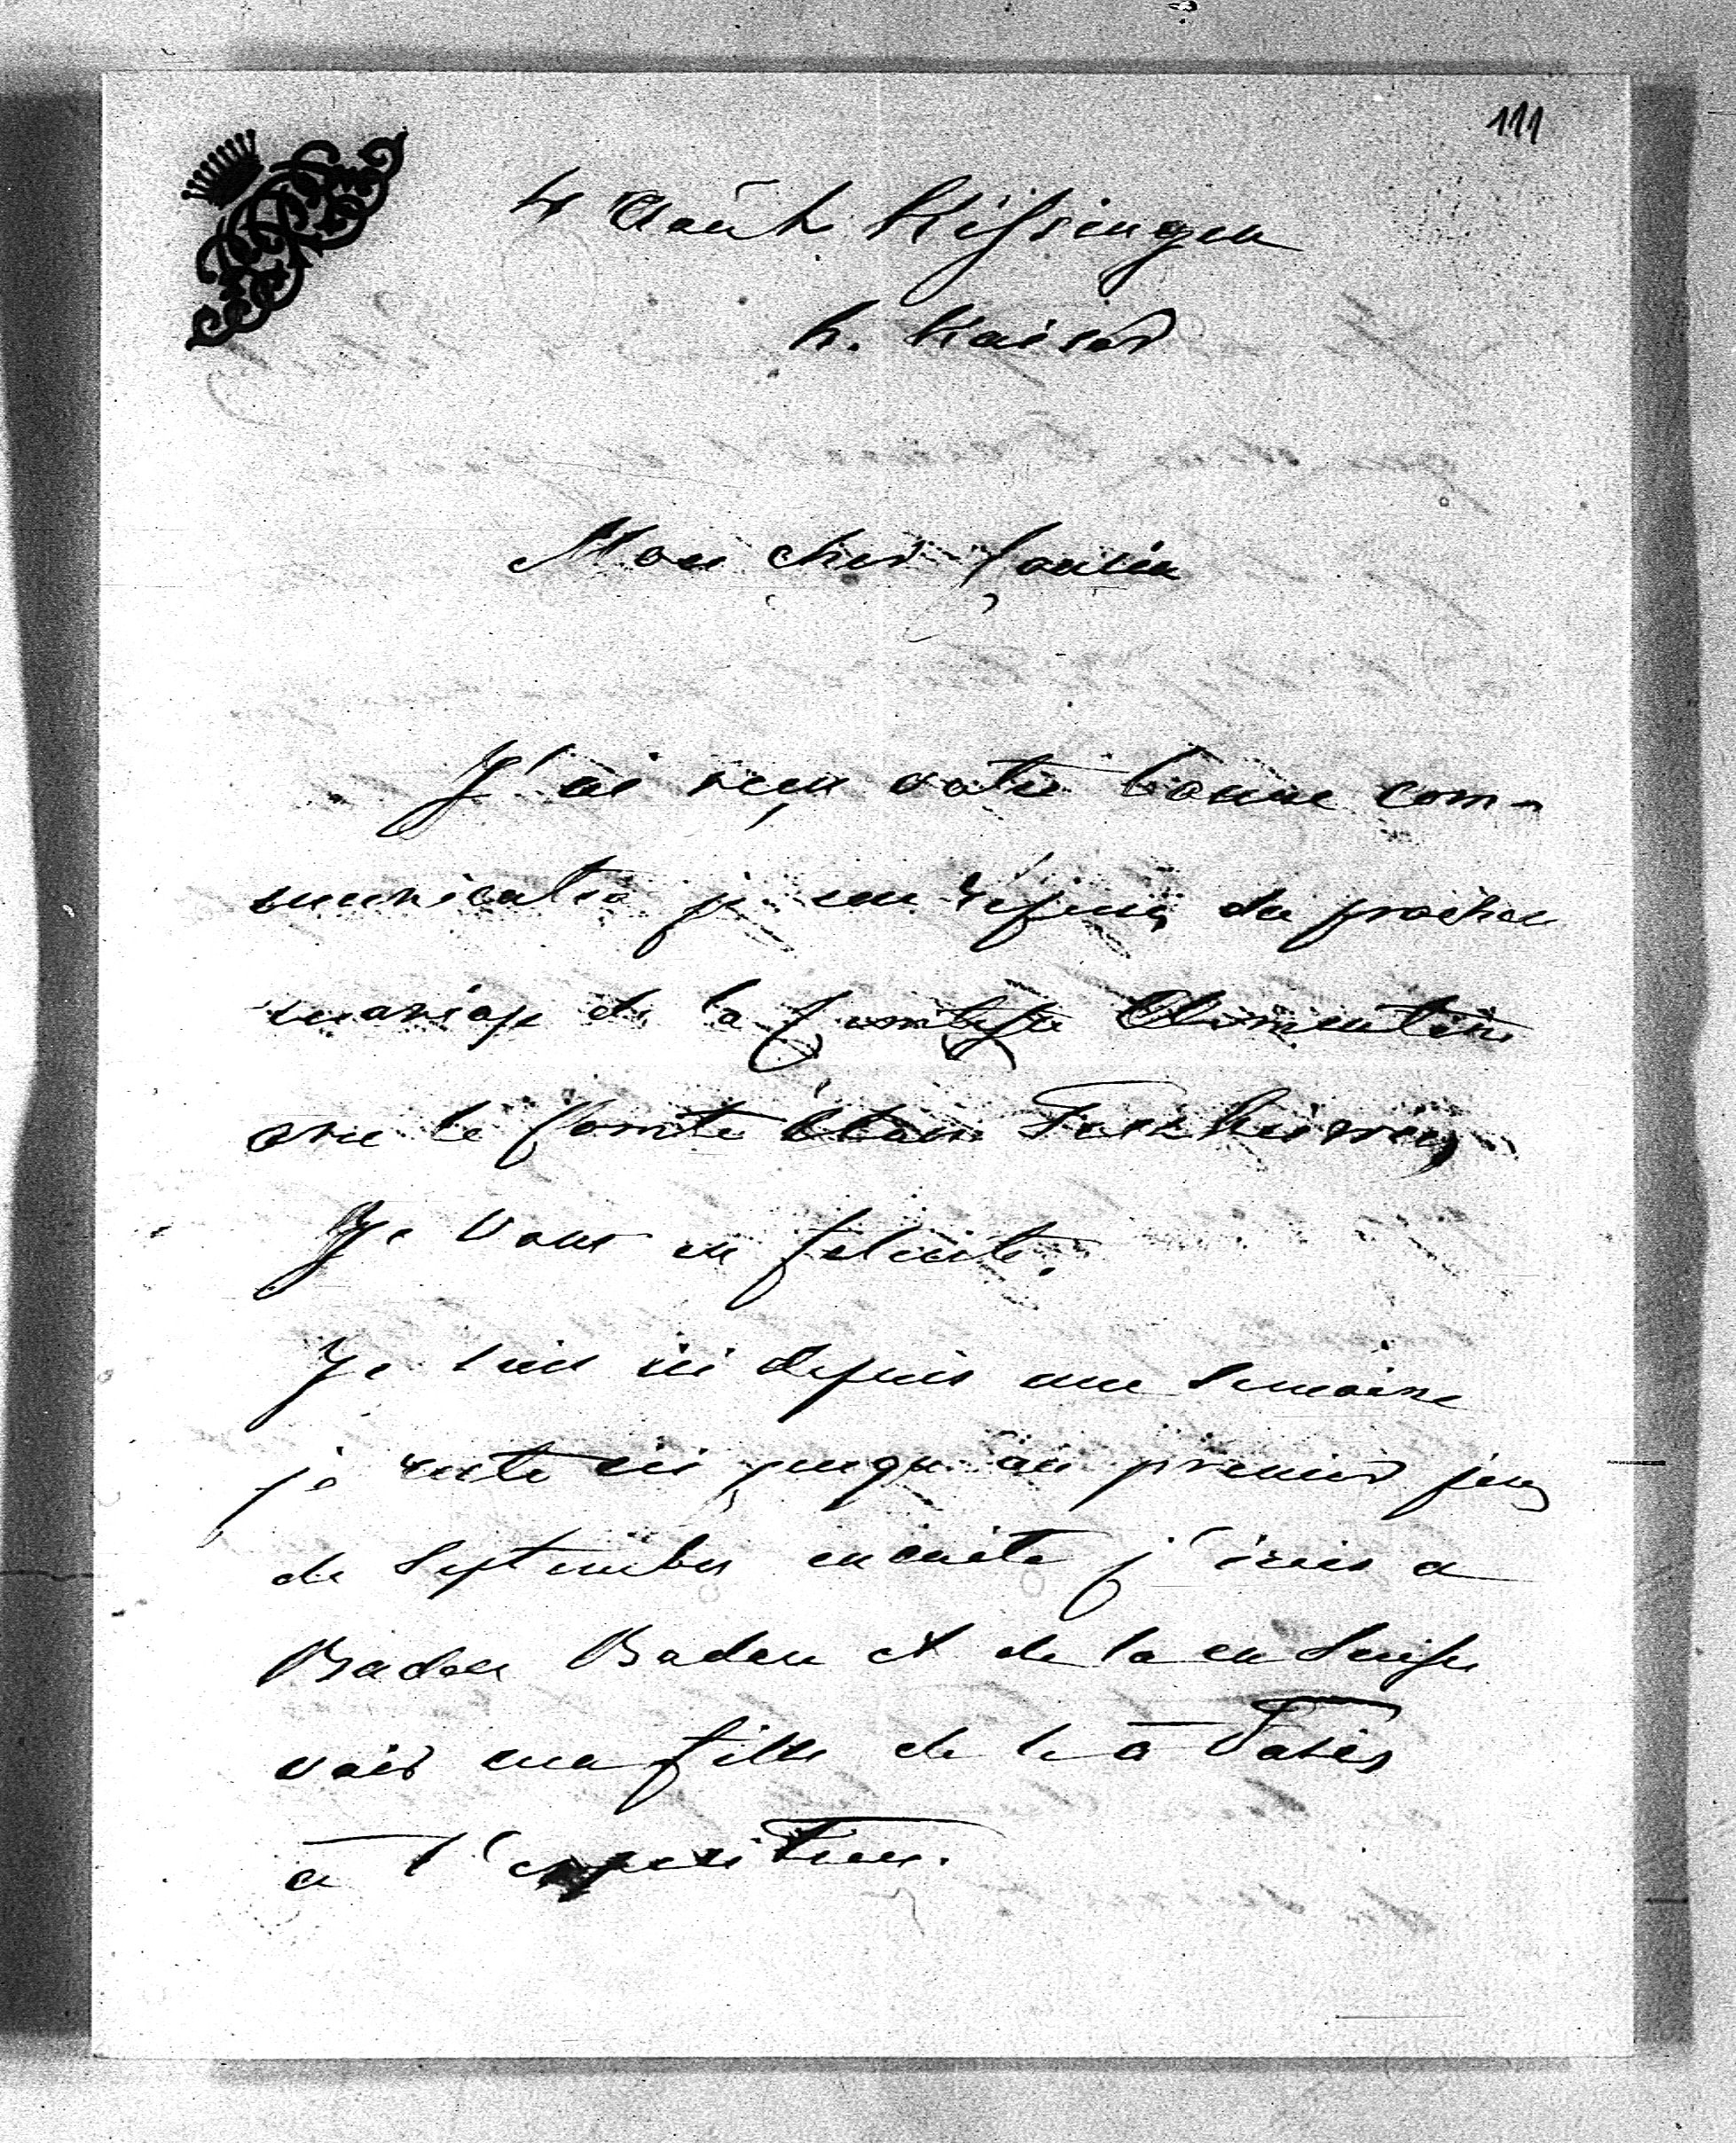 111
4 Août Kissingen
h. Kaiser
Mon cher Cousin
J'ai reçu votre bonne com-
munication je me réjouis du prochain
mariage de la Comtesse Clementine
avec le Comte
Je vous en felicite.
Je suis ici depuis une semaine
je reste ici jusqu'au premier jours
de Septembre ensuite j'irais a
Baden Baden et de la en Suisse
voir ma fille de la à Paris
à l'exposition.